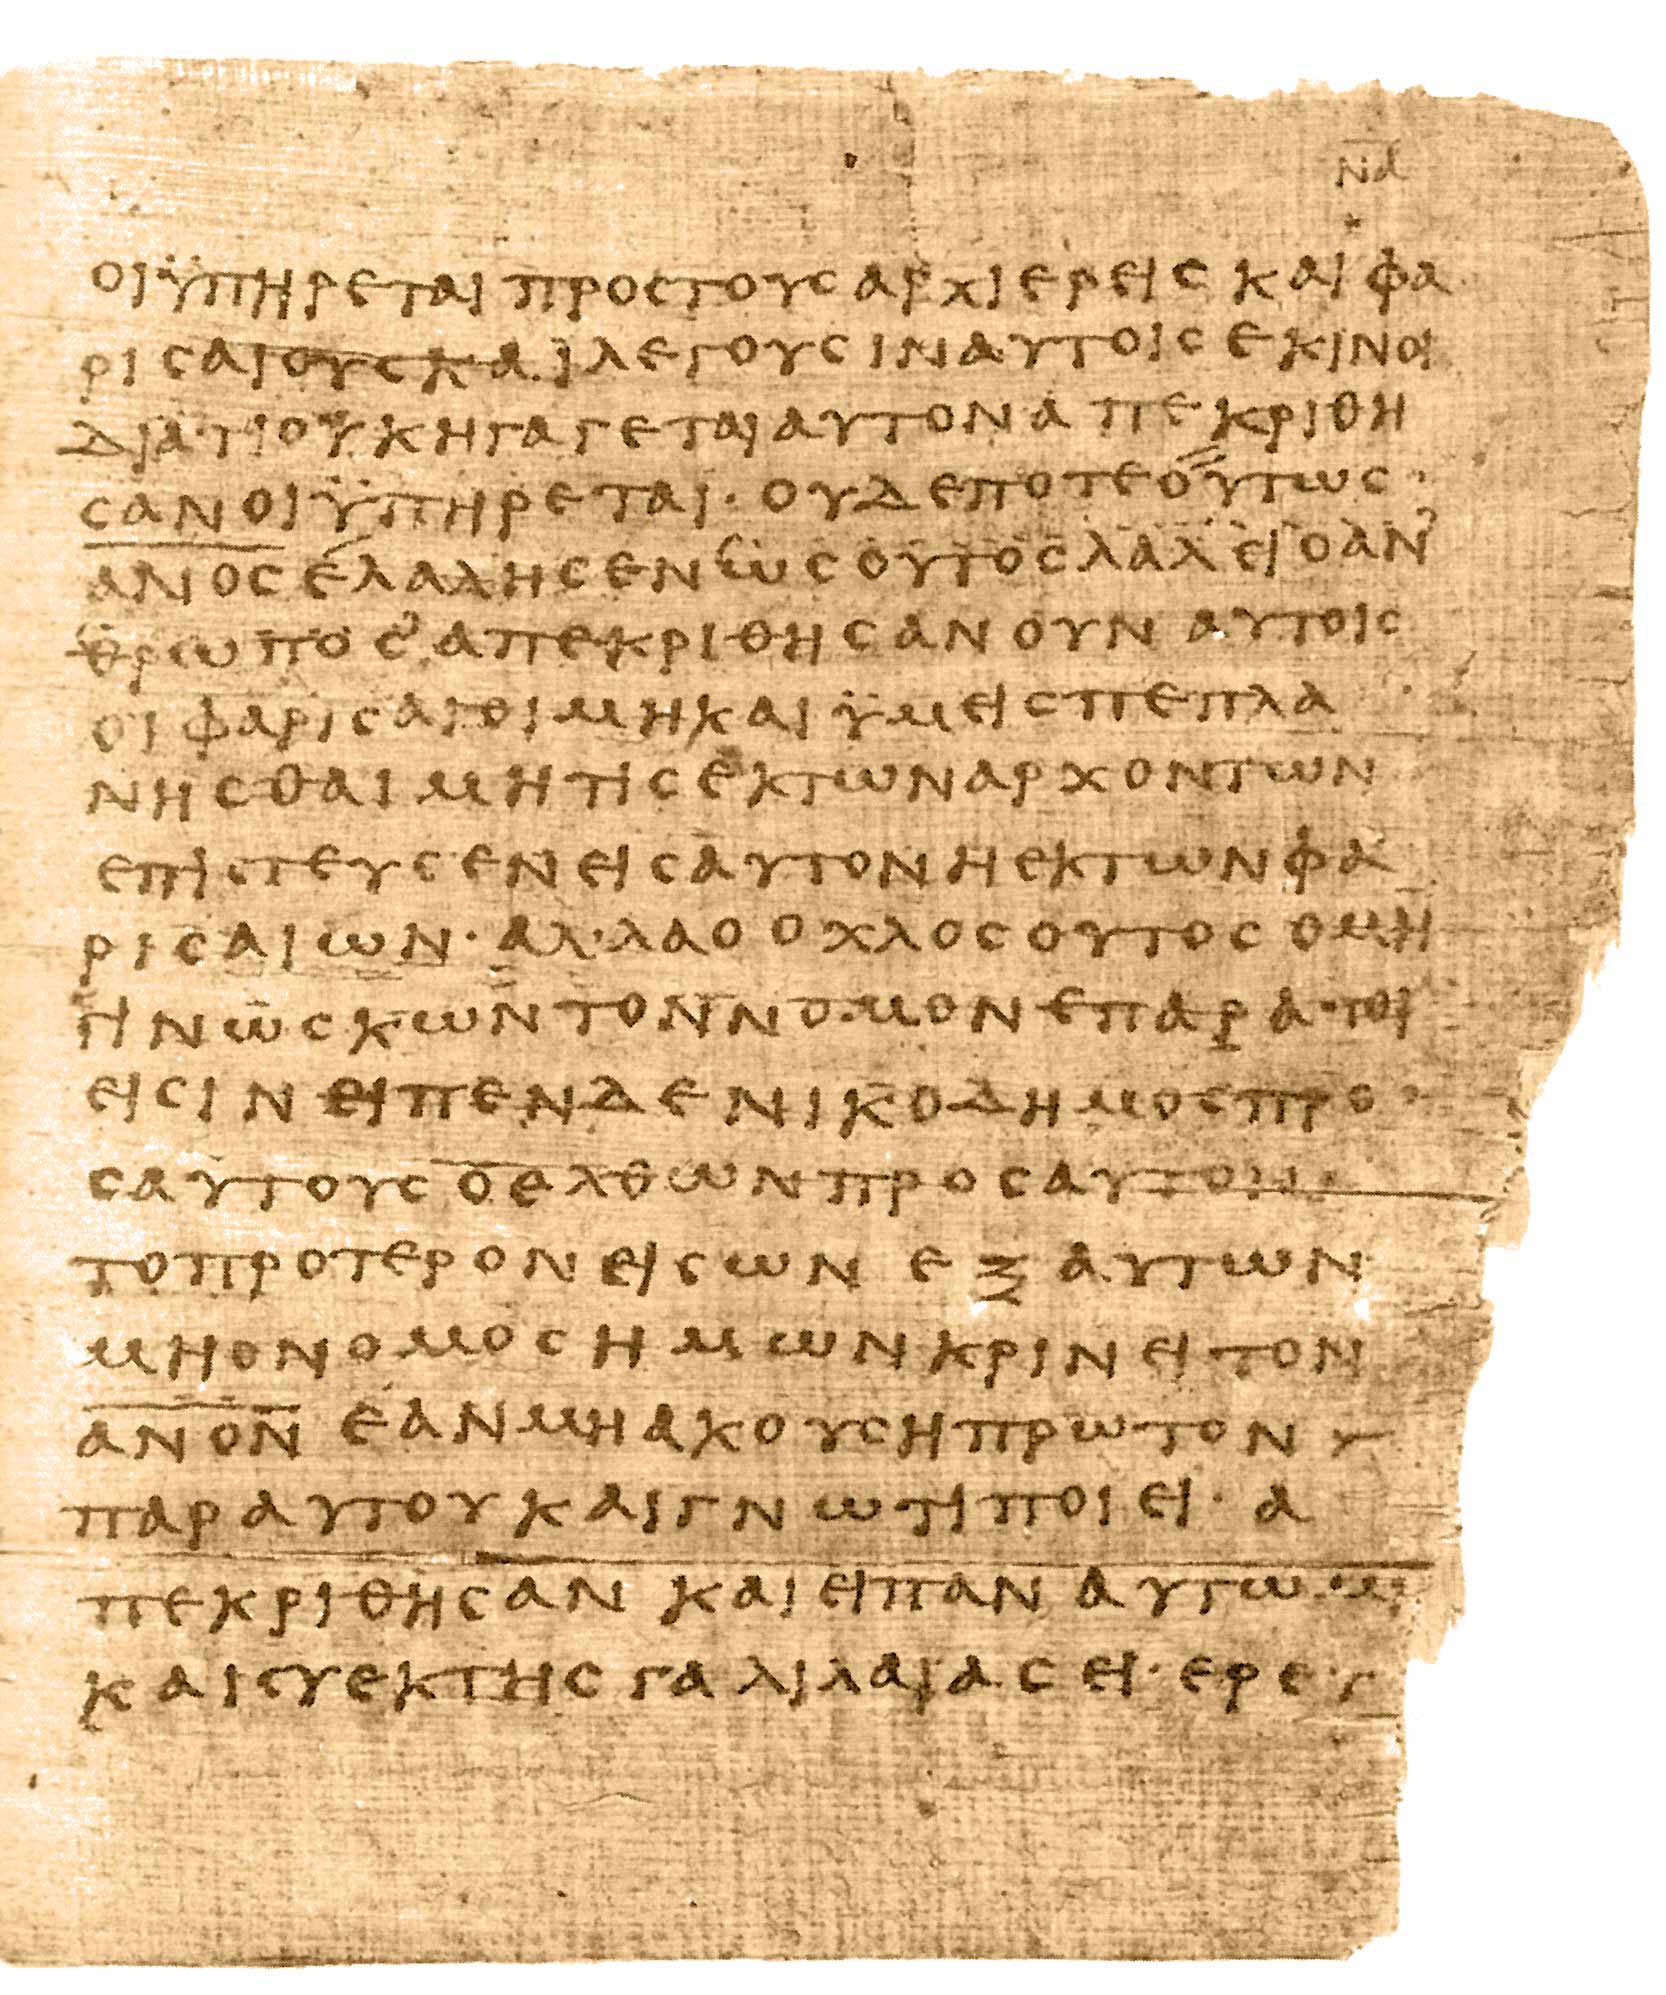 ΝΔ
οιϋπηρεταιπροςτουςαρχιερειςκαιφα
ριςαιουςκαιλεγουςιναυτοιςεκινοι
διατιουκηγαγεταιαυτοναπεκριθη
ςανοιϋπηρεται·ουδεποτεουτως
ανοςελαληςενωςουτοςλαλειοαν
θρωποςαπεκριθηςανουναυτοις
οιφαριςαιοιμηκαιϋμειςπεπλα
νηςθαιμητιςεκτωναρχοντων
επιςτευςενειςαυτονηεκτωνφα
ριςαιων·αλλαοοχλοςουτοςομη
γινωςκωντοννομονεπαρατοι
ειςινειπενδενικοδημοςπρο
ςαυτουςοελθωνπροςαυτον
τοπροτερονειςωνεξαυτων
μηονομοςημωνκρινειτον
ανονεανμηακουςηπρωτον
παραυτουκαιγνωτιποιει·α
πεκριθηςανκαιειπαναυτωμ
καιςυεκτηςγαλιλαιαςει·ερε